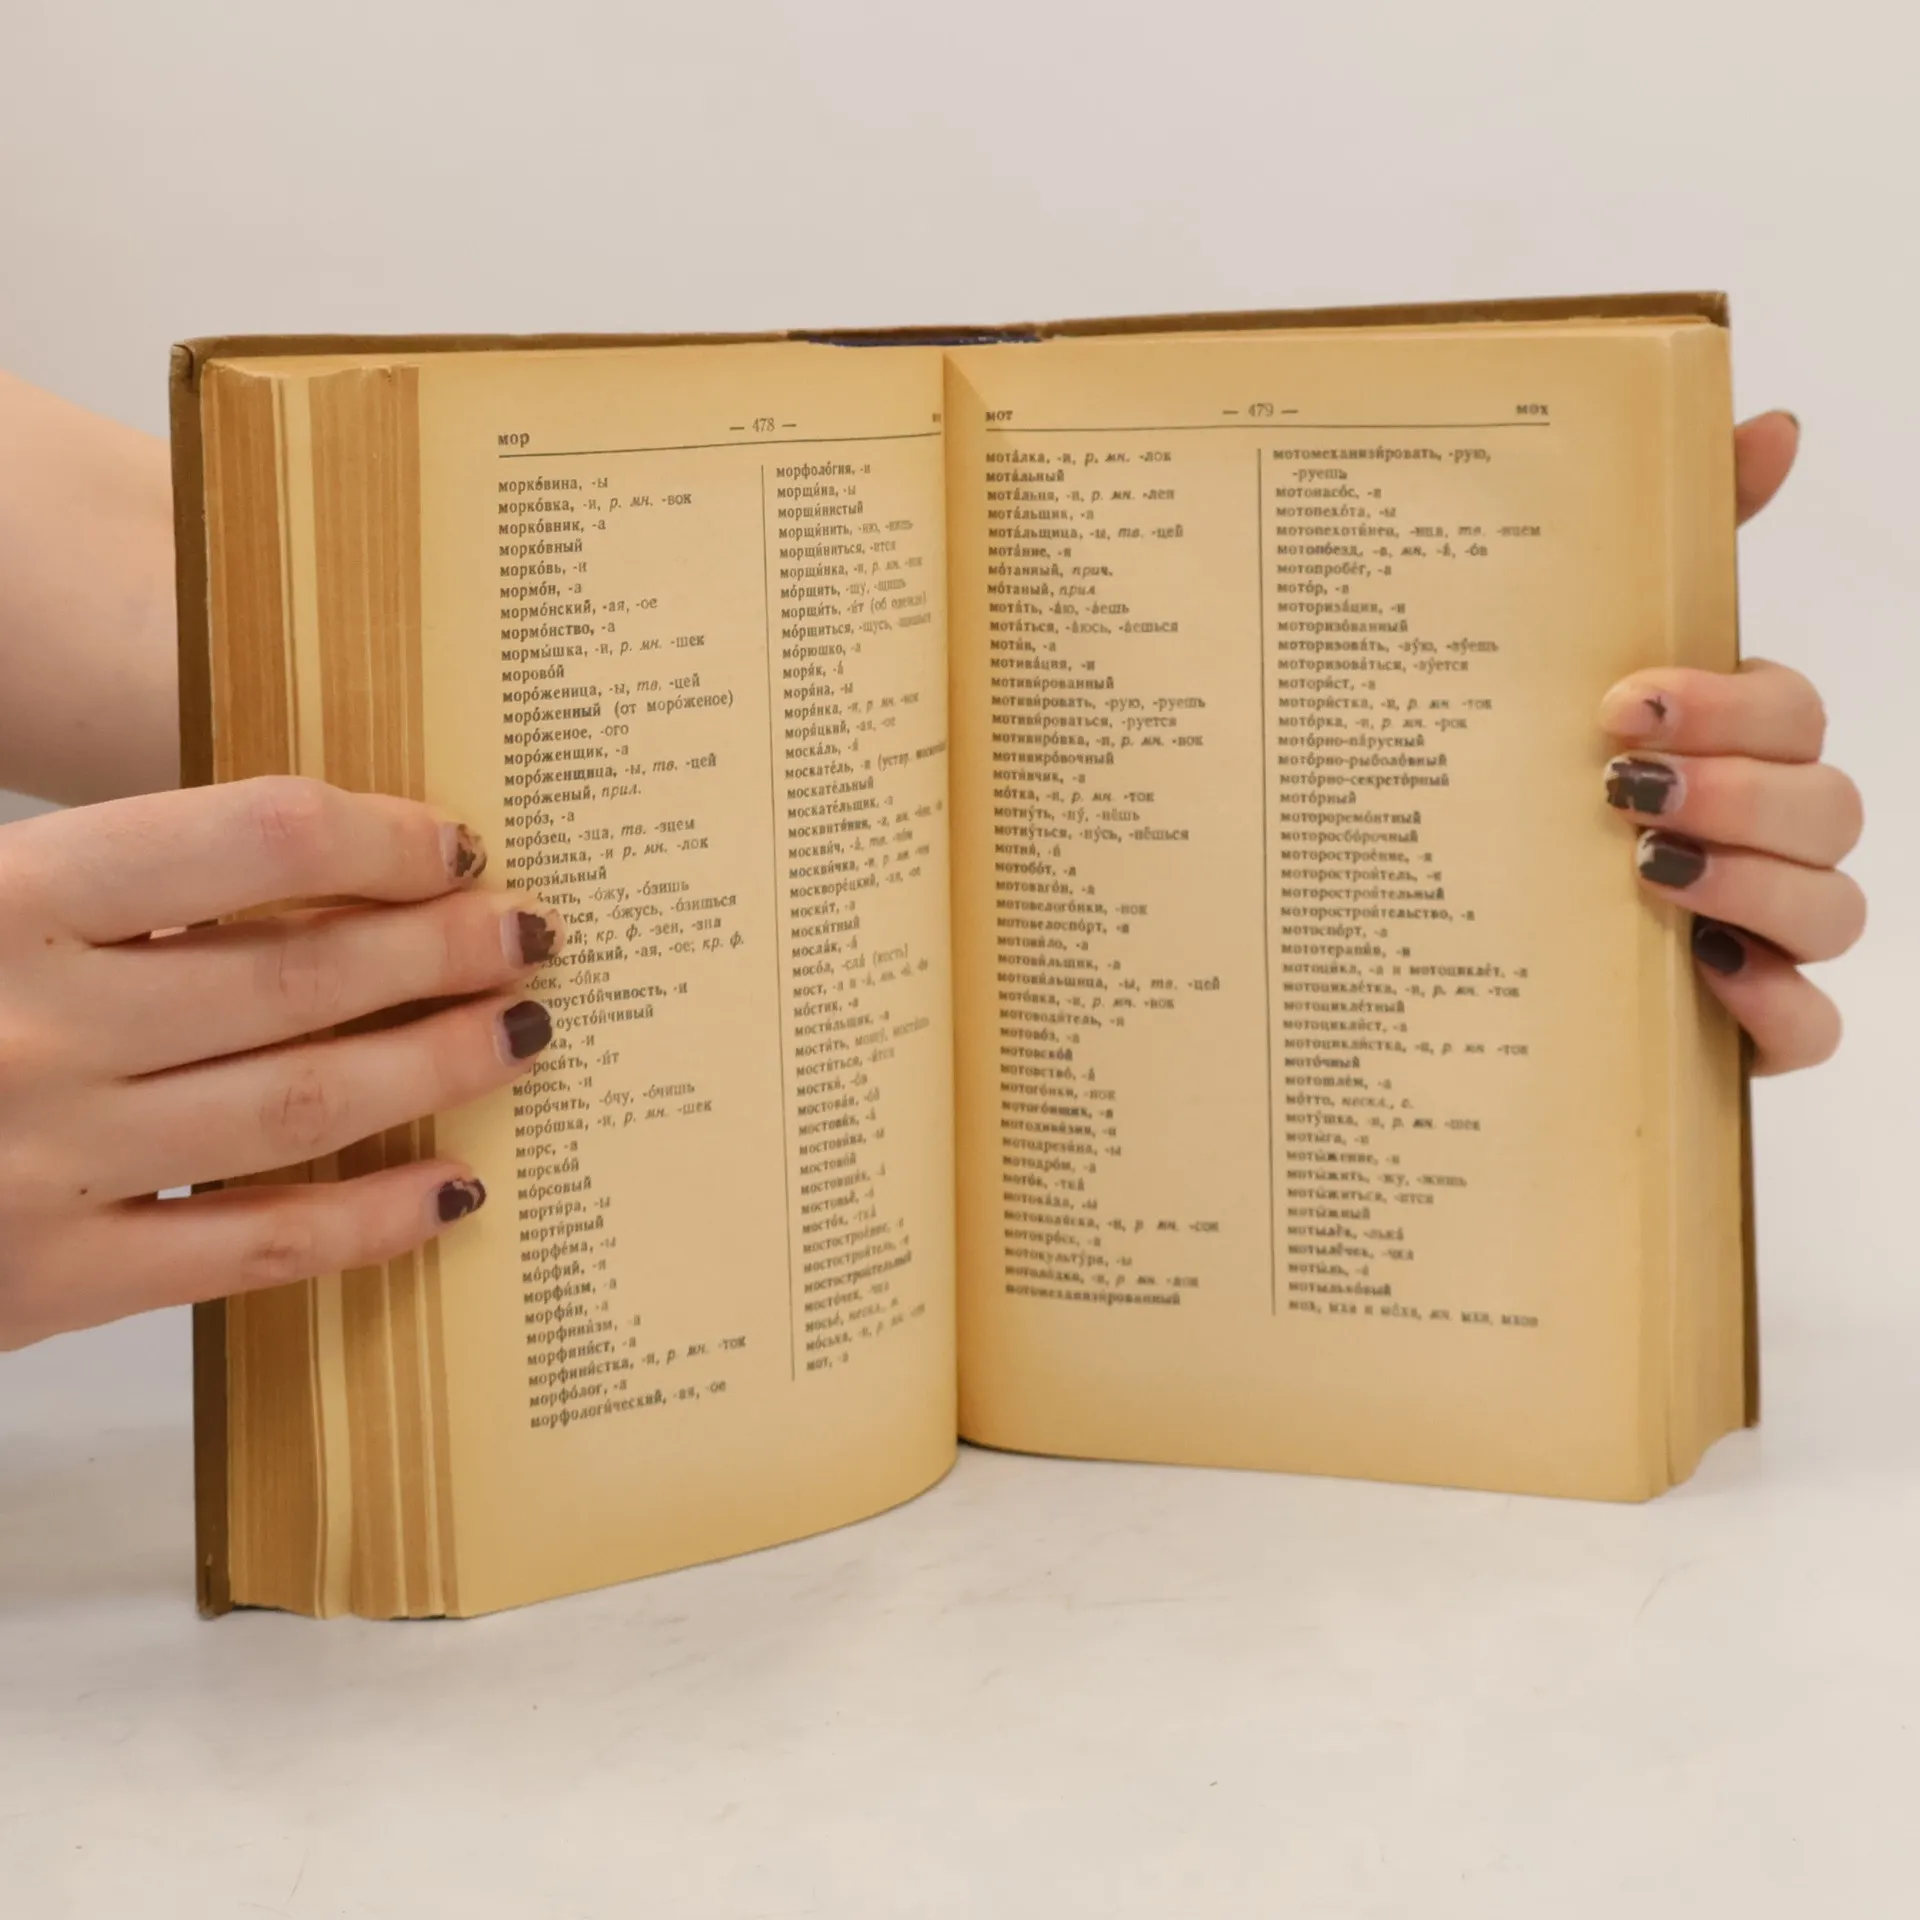 мор
— 478 —
морко́вина, -ы
морко́вка, -и, р. мн. -вок
морко́вник, -а
морко́вный
морко́вь, -и
мормо́н, -а
мормо́нский, -ая, -ое
мормо́нство, -а
мормы́шка, -и, р. мн. -шек
морово́й
моро́женица, -ы, тв. -цей
моро́женный (от моро́женое)
моро́женое, -ого
моро́женщик, -а
моро́женщица, -ы, тв. -цей
моро́женый, прил.
моро́з, -а
моро́зец, -зца, тв. -зцем
моро́зилка, -и р. мн. -лок
морози́льный
-о́жу, -о́зишь
-о́жусь, -о́зишься
кр. ф. -зен, -зна
-ая, -ое; кр. ф.
-о́йка
мо́рось, -и
моро́чить, -о́чу, -о́чишь
моро́шка, -и, р. мн. -шек
морс, -а
морско́й
мо́рсовый
морти́ра, -ы
морти́рный
морфе́ма, -ы
мо́рфий, -я
морфи́зм, -а
морфи́н, -а
морфини́зм, -а
морфини́ст, -а
морфини́стка, -и, р. мн. -ток
морфо́лог, -а
морфологи́ческий, -ая, -ое
морфоло́гия, -и
морщи́на, -ы
морщи́нистый
морщи́нить, -ню, -нишь
морщи́ниться, -ится
морщи́нка, -и, р. мн. -нок
мо́рщить, -щу, -щишь
морщи́ть, -и́т (об одежде)
мо́рщиться, -щусь, -щишься
мо́рюшко, -а
моря́к, -а́
моря́на, -ы
моря́нка, -и, р. мн. -нок
моря́цкий, -ая, -ое
моска́ль, -я́
москате́ль, -и (устар.
москате́льный
москате́льщик, -а
москвитя́нин, -а, мн.
москви́ч, -а́, тв. -чо́м
москви́чка, -и, р. мн. -чек
москворе́цкий, -ая, -ое
моски́т, -а
моски́тный
мосла́к, -а́
мосо́л, -сла́ (кость)
мост, -а и -а́, мн. -ы́, -о́в
мо́стик, -а
мости́льщик, -а
мости́ть, мощу́, мости́шь
мости́ться, -и́тся
мостки́, -о́в
мостова́я, -о́й
мостови́к, -а́
мостови́на, -ы
мостово́й
мостовщи́к, -а́
мостовьё, -я́
мосто́к, -тка́
мостострое́ние, -я
мостострои́тель, -я
мостострои́тельный
мосто́чек, -чка
мосьё, нескл., м
мо́ська, -и, р. мн. -сек
мот, -а
мот
— 479 —
мох
мота́лка, -и, р. мн. -лок
мота́льный
мота́льня, -и, р. мн. -лен
мота́льщик, -а
мота́льщица, -ы, тв. -цей
мота́ние, -я
мо́танный, прич.
мо́таный, прил.
мота́ть, -а́ю, -а́ешь
мота́ться, -а́юсь, -а́ешься
моти́в, -а
мотива́ция, -и
мотиви́рованный
мотиви́ровать, -рую, -руешь
мотиви́роваться, -руется
мотивиро́вка, -и, р. мн. -вок
мотивиро́вочный
моти́вчик, -а
мо́тка, -и, р. мн. -ток
мотну́ть, -ну́, -нёшь
мотну́ться, -ну́сь, -нёшься
мотня́, -и́
мотобо́т, -а
мотоваго́н, -а
мотовелого́нки, -нок
мотовелоспо́рт, -а
мотови́ло, -а
мотови́льщик, -а
мотови́льщица, -ы, тв. -цей
мото́вка, -и, р. мн. -вок
мотоводи́тель, -я
мотово́з, -а
мотовско́й
мотовство́, -а́
мотого́нки, -нок
мотого́нщик, -а
мотодиви́зия, -и
мотодрези́на, -ы
мотодро́м, -а
мото́к, -тка́
мотока́да, -ы
мотоколя́ска, -и, р. мн. -сок
мотокро́сс, -а
мотокульту́ра, -ы
мотоло́дка, -и, р. мн. -док
мотомеханизи́рованный
мотомеханизи́ровать, -рую,
-руешь
мотонасо́с, -а
мотопехо́та, -ы
мотопехоти́нец, -нца, тв. -нцем
мотопо́езд, -а, мн. -а́, -о́в
мотопробе́г, -а
мото́р, -а
моториза́ция, -и
моторизо́ванный
моторизова́ть, -зу́ю, -зу́ешь
моторизова́ться, -зу́ется
мотори́ст, -а
мотори́стка, -и, р. мн. -ток
мото́рка, -и, р. мн. -рок
мото́рно-па́русный
мото́рно-рыболо́вный
мото́рно-секрето́рный
мото́рный
мотороремо́нтный
моторосбо́рочный
моторострое́ние, -я
моторострои́тель, -я
моторострои́тельный
моторострои́тельство, -а
мотоспо́рт, -а
мототерапи́я, -и
мотоци́кл, -а и мотоцикле́т, -а
мотоцикле́тка, -и, р. мн. -ток
мотоцикле́тный
мотоцикли́ст, -а
мотоцикли́стка, -и, р. мн. -ток
мото́чный
мотошле́м, -а
мо́тто, нескл., с.
моту́шка, -и, р. мн. -шек
моты́га, -и
моты́жение, -я
моты́жить, -жу, -жишь
моты́житься, -ится
моты́жный
мотылёк, -лька́
мотылёчек, -чка
моты́ль, -я́
мотылько́вый
мох, мха и мо́ха, мн. мхи, мхов